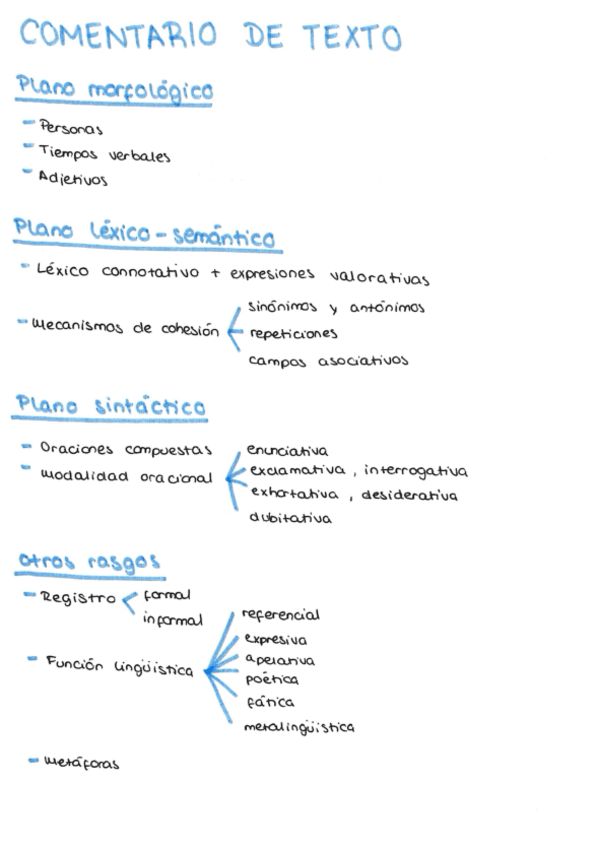 COMENTARIO DE TEXTO
Plano morfológico
- Personas
- Tiempos verbales
- Adjetivos
Plano léxico-semántico
- Léxico connotativo + expresiones valorativas
- Mecanismos de cohesión
sinónimos y antónimos
repeticiones
campos asociativos
Plano sintáctico
- Oraciones compuestas
- Modalidad oracional
enunciativa
exclamativa, interrogativa
exhortativa, desiderativa
dubitativa
Otros rasgos
- Registro
formal
informal
- Función lingüística
referencial
expresiva
apelativa
poética
fática
metalingüística
- Metáforas